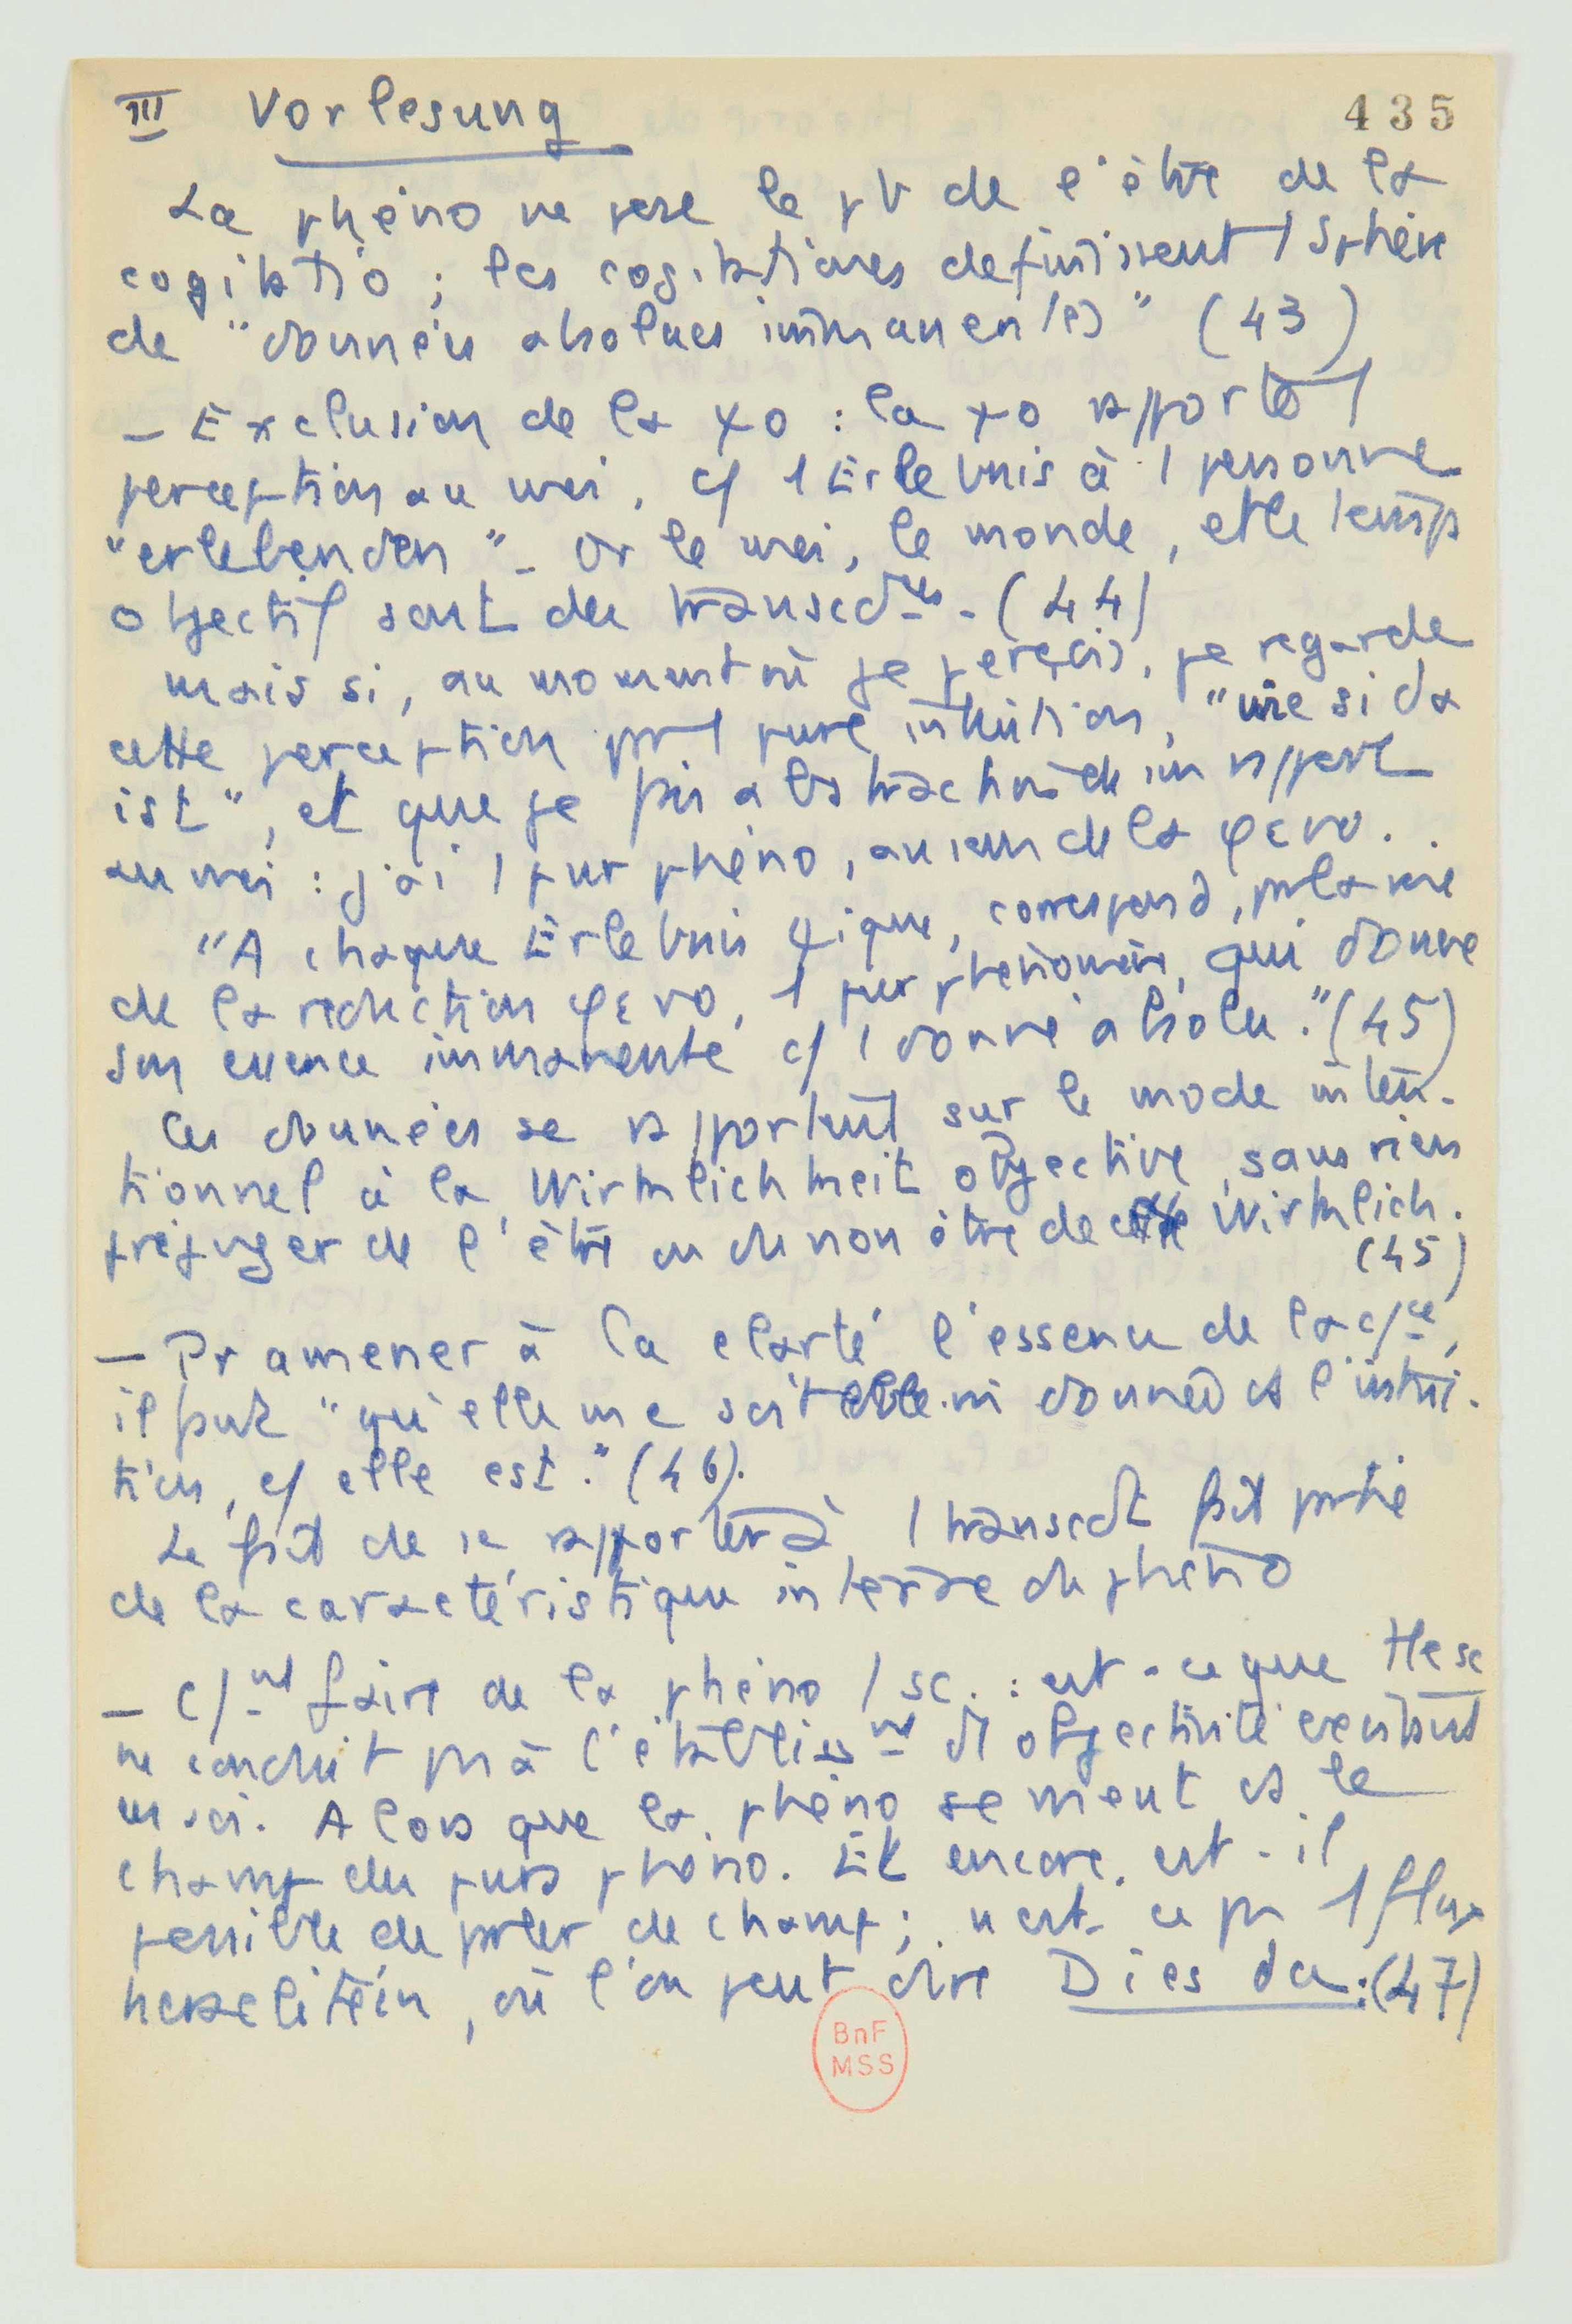 III Vorlesung
435
La phéno ne pose le pb de l'être de la
cogitatio ; les cogitationes définissent 1 sphère
de "données absolues immanentes" (43)
– Exclusion de la ψo : la ψo rapporte 1
perception au moi, c/ 1 Erlebnis à 1 personne
"erlebenden" – Or le moi, le monde, et le temps
objectif sont des transcdtes – (44)
mais si, au moment où je perçois, je regarde
cette perception par 1 pure intuition, "wie si da
ist", et que je fais abstraction de son rapport
au moi : j'ai 1 pur phéno, au sens de la φενο.
"A chaque Erlebnis ψique, correspond, par la voie
de la réduction φενο, 1 pur phénomène, qui donne
son essence immanente c/ 1 donné absolu." (45)
Ces données se rapportent sur le mode inten-
tionnel à la Wirklichkeit objective, sans rien
préjuger de l'être ou du non être de cette Wirklich.
(45)
– Pr amener à la clarté l'essence de la c/ce,
il faut "qu'elle me soit donnée ds l'intui-
tion, c/ elle est." (46).
Le fait de se rapporter à 1 transcdt fait partie
de la caractéristique interne du phéno
– C/nt faire de la phéno 1 sc. : est-ce que
ne conduit pas à l'établissnt d'1 objectivité existant
en soi. Alors que la phéno se meut ds le
champ des purs phéno. Et encore, est-il
possible de parler de champ ; n'est-ce pas 1 flux
héraclitéin, où l'on peut dire Dies da : (47)
BnF
MSS